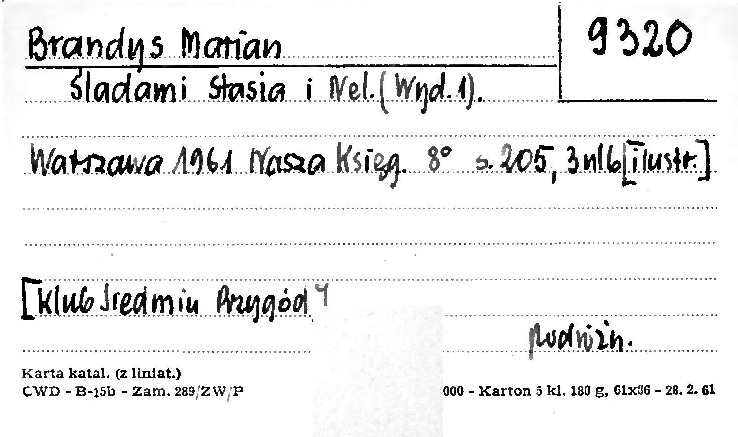 Brandys Marian
9320
Śladami Stasia i Nel. (Wyd. 1).
Warszawa 1961 Nasza Księg. 8° s. 205, 3 nlb [ilustr.]
[Klub Siedmiu Przygód
Karta katal. (z liniat.)
CWD - B-15b - Zam. 289/ZW/P
000 - Karton 5 kl. 180 g, 61x86 - 28. 2. 61